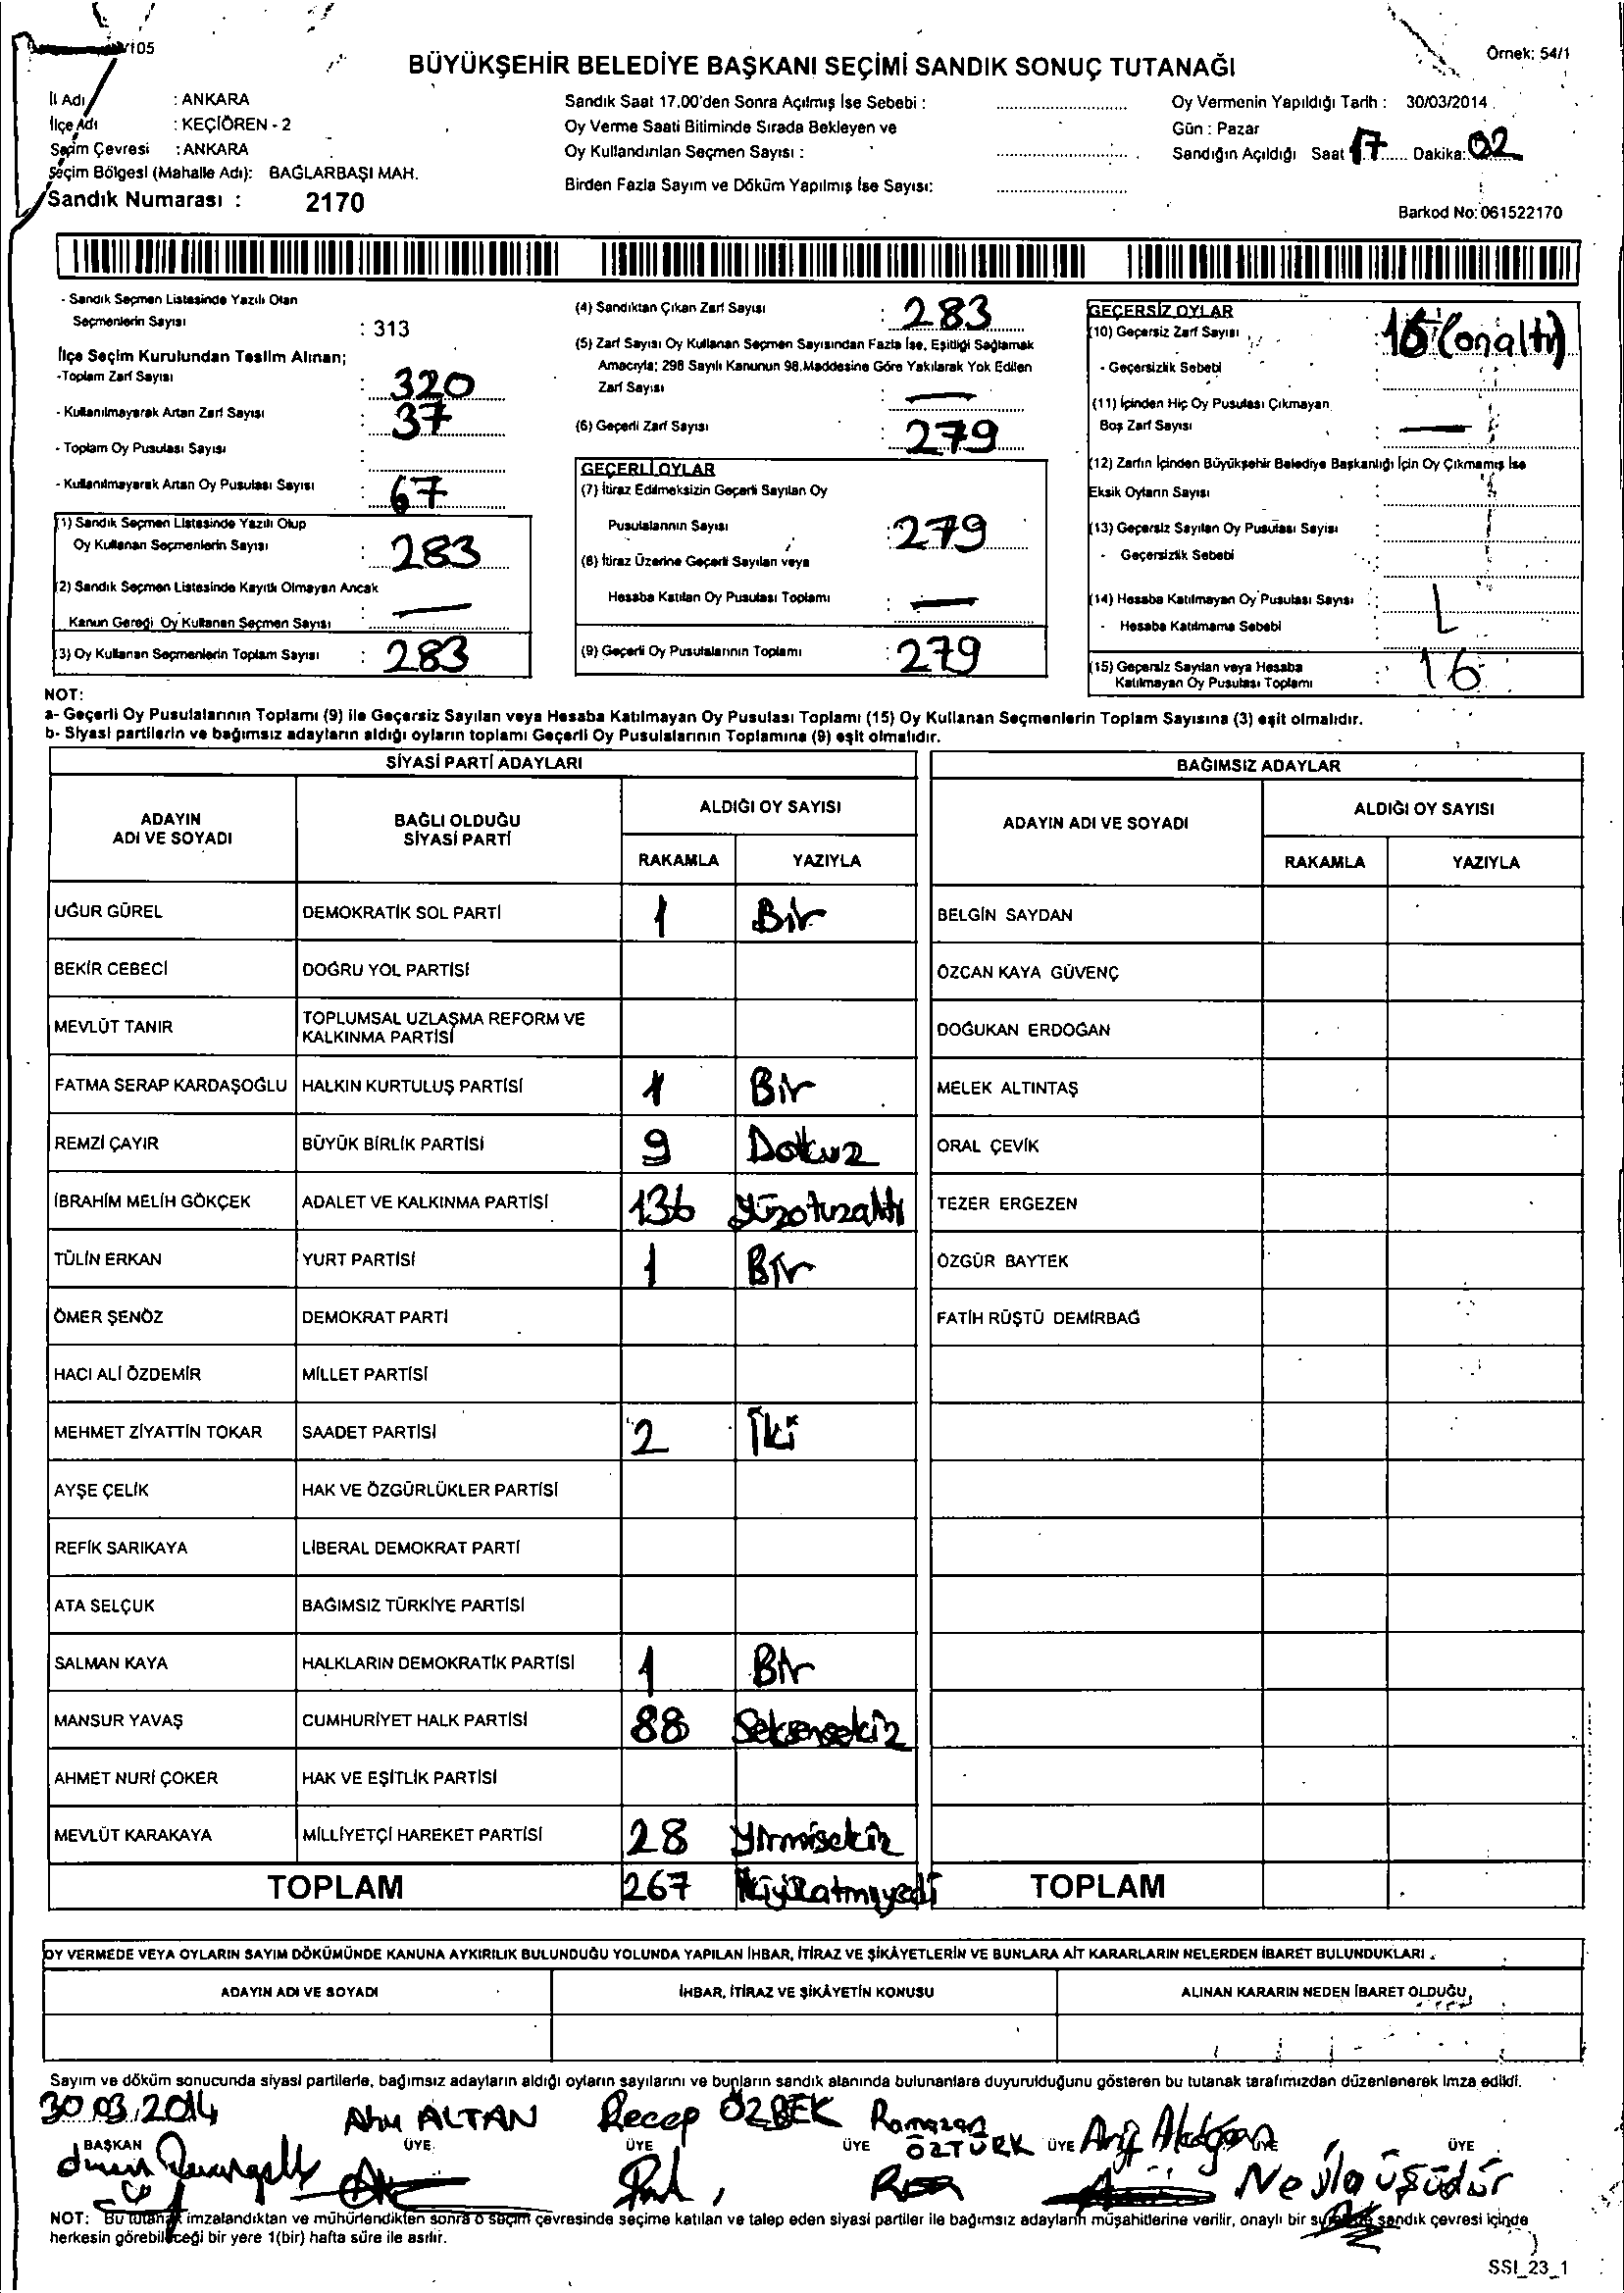 105
Örnek: 54/1
BÜYÜKŞEHİR BELEDİYE BAŞKANI SEÇİMİ SANDIK SONUÇ TUTANAĞI
İl Adı : ANKARA
İlçe Adı : KEÇİÖREN - 2
Seçim Çevresi : ANKARA
Seçim Bölgesi (Mahalle Adı): BAĞLARBAŞI MAH.
Sandık Numarası : 2170
Sandık Saat 17.00'den Sonra Açılmış İse Sebebi :
Oy Verme Saati Bitiminde Sırada Bekleyen ve
Oy Kullandırılan Seçmen Sayısı :
Birden Fazla Sayım ve Döküm Yapılmış İse Sayısı:
Oy Vermenin Yapıldığı Tarih : 30/03/2014
Gün : Pazar
Sandığın Açıldığı Saat 17 Dakika: 02
Barkod No: 061522170
- Sandık Seçmen Listesinde Yazılı Olan
Seçmenlerin Sayısı : 313
İlçe Seçim Kurulundan Teslim Alınan;
-Toplam Zarf Sayısı : 320
- Kullanılmayarak Artan Zarf Sayısı : 37
- Toplam Oy Pusulası Sayısı :
- Kullanılmayarak Artan Oy Pusulası Sayısı : 67
(1) Sandık Seçmen Listesinde Yazılı Olup
Oy Kullanan Seçmenlerin Sayısı : 283
(2) Sandık Seçmen Listesinde Kayıtlı Olmayan Ancak
Kanun Gereği Oy Kullanan Seçmen Sayısı : —
(3) Oy Kullanan Seçmenlerin Toplam Sayısı : 283
(4) Sandıktan Çıkan Zarf Sayısı : 283
(5) Zarf Sayısı Oy Kullanan Seçmen Sayısından Fazla İse, Eşitliği Sağlamak
Amacıyla; 298 Sayılı Kanunun 98.Maddesine Göre Yakılarak Yok Edilen
Zarf Sayısı : —
(6) Geçerli Zarf Sayısı : 279
GEÇERLİ OYLAR
(7) İtiraz Edilmeksizin Geçerli Sayılan Oy
Pusulalarının Sayısı : 279
(8) İtiraz Üzerine Geçerli Sayılan veya
Hesaba Katılan Oy Pusulası Toplamı : —
(9) Geçerli Oy Pusulalarının Toplamı : 279
GEÇERSİZ OYLAR
(10) Geçersiz Zarf Sayısı : 16 (onaltı)
- Geçersizlik Sebebi :
(11) İçinden Hiç Oy Pusulası Çıkmayan
Boş Zarf Sayısı : —
(12) Zarfın İçinden Büyükşehir Belediye Başkanlığı İçin Oy Çıkmamış İse
Eksik Oyların Sayısı :
(13) Geçersiz Sayılan Oy Pusulası Sayısı :
- Geçersizlik Sebebi :
(14) Hesaba Katılmayan Oy Pusulası Sayısı :
- Hesaba Katılmama Sebebi
(15) Geçersiz Sayılan veya Hesaba
Katılmayan Oy Pusulası Toplamı : 16
NOT:
a- Geçerli Oy Pusulalarının Toplamı (9) ile Geçersiz Sayılan veya Hesaba Katılmayan Oy Pusulası Toplamı (15) Oy Kullanan Seçmenlerin Toplam Sayısına (3) eşit olmalıdır.
b- Siyasi partilerin ve bağımsız adayların aldığı oyların toplamı Geçerli Oy Pusulalarının Toplamına (9) eşit olmalıdır.
SİYASİ PARTİ ADAYLARI
ADAYIN
ADI VE SOYADI
BAĞLI OLDUĞU
SİYASİ PARTİ
ALDIĞI OY SAYISI
RAKAMLA YAZIYLA
BAĞIMSIZ ADAYLAR
ADAYIN ADI VE SOYADI
ALDIĞI OY SAYISI
RAKAMLA YAZIYLA
UĞUR GÜREL DEMOKRATİK SOL PARTİ 1 Bir BELGİN SAYDAN
BEKİR CEBECİ DOĞRU YOL PARTİSİ ÖZCAN KAYA GÜVENÇ
MEVLÜT TANIR TOPLUMSAL UZLAŞMA REFORM VE
KALKINMA PARTİSİ DOĞUKAN ERDOĞAN
FATMA SERAP KARDAŞOĞLU HALKIN KURTULUŞ PARTİSİ 1 Bir MELEK ALTINTAŞ
REMZİ ÇAYIR BÜYÜK BİRLİK PARTİSİ 9 Dokuz ORAL ÇEVİK
İBRAHİM MELİH GÖKÇEK ADALET VE KALKINMA PARTİSİ 136 Yüzotuzaltı TEZER ERGEZEN
TÜLİN ERKAN YURT PARTİSİ 1 Bir ÖZGÜR BAYTEK
ÖMER ŞENÖZ DEMOKRAT PARTİ FATİH RÜŞTÜ DEMİRBAĞ
HACI ALİ ÖZDEMİR MİLLET PARTİSİ
MEHMET ZİYATTİN TOKAR SAADET PARTİSİ 2 İki
AYŞE ÇELİK HAK VE ÖZGÜRLÜKLER PARTİSİ
REFİK SARIKAYA LİBERAL DEMOKRAT PARTİ
ATA SELÇUK BAĞIMSIZ TÜRKİYE PARTİSİ
SALMAN KAYA HALKLARIN DEMOKRATİK PARTİSİ 1 Bir
MANSUR YAVAŞ CUMHURİYET HALK PARTİSİ 88 Seksensekiz
AHMET NURİ ÇOKER HAK VE EŞİTLİK PARTİSİ
MEVLÜT KARAKAYA MİLLİYETÇİ HAREKET PARTİSİ 28 Yirmisekiz
TOPLAM 267 İkiyüzatmıyedi TOPLAM
OY VERMEDE VEYA OYLARIN SAYIM DÖKÜMÜNDE KANUNA AYKIRILIK BULUNDUĞU YOLUNDA YAPILAN İHBAR, İTİRAZ VE ŞİKÂYETLERİN VE BUNLARA AİT KARARLARIN NELERDEN İBARET BULUNDUKLARI
ADAYIN ADI VE SOYADI İHBAR, İTİRAZ VE ŞİKÂYETİN KONUSU ALINAN KARARIN NEDEN İBARET OLDUĞU
Sayım ve döküm sonucunda siyasi partilerle, bağımsız adayların aldığı oyların sayılarını ve bunların sandık alanında bulunanlara duyurulduğunu gösteren bu tutanak tarafımızdan düzenlenerek imza edildi.
30.03.2014 ALTAN Recep ÖZBEK Ramazan
BAŞKAN ÜYE ÜYE ÜYE ÖZTÜRK ÜYE Arif ÜYE ÜYE
NOT: Bu tutanak imzalandıktan ve mühürlendikten sonra o seçim çevresinde seçime katılan ve talep eden siyasi partiler ile bağımsız adayların müşahitlerine verilir, onaylı bir sandık çevresi içinde
herkesin görebileceği bir yere 1(bir) hafta süre ile asılır.
SSI_23_1